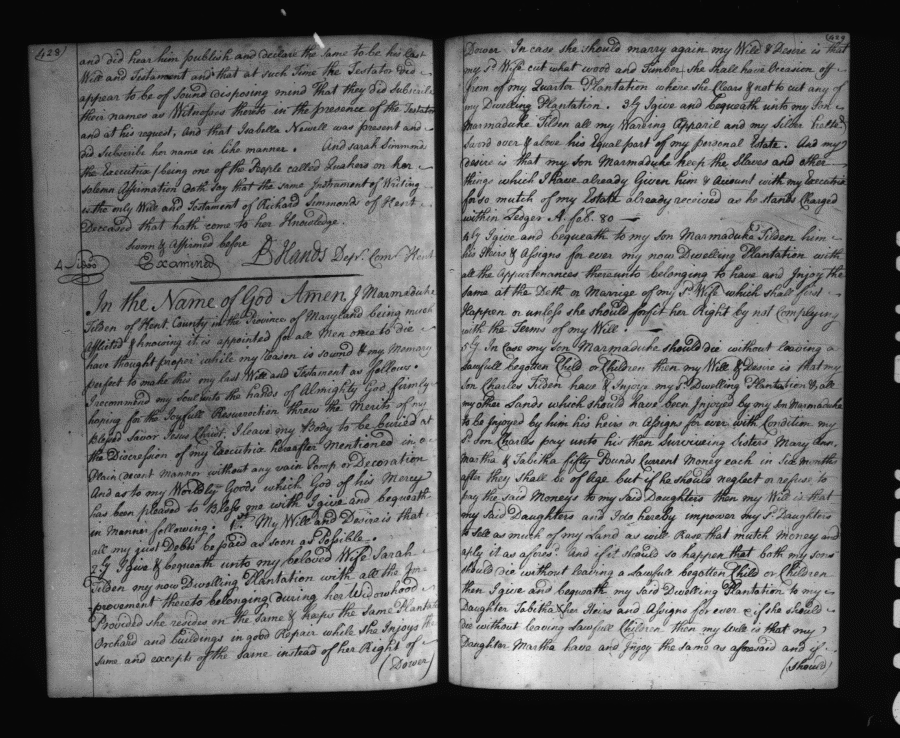 (428)
and did hear him publish and declare the same to be his Last
Will and Testament and that at such Time the Testator did
appear to be of sound disposing mind that they did Subscribe
their names as Witnesses thereto in the presence of the Testator
and at his request, And that Isabella Newell was present and
did Subscribe her name in like manner. And Sarah Simmonds
the Executrix (being one of the People called Quakers on her
Solemn Affirmation doth Say that the same Instrument of Writing
is the only Will and Testament of Richard Simmonds of Kent
Deceased that hath come to her Knowledge.
Sworn & Affirmed before
Examined Hands Depy. Com. Kent
In the Name of God Amen I Marmaduke
Tilden of Kent County in the Province of Maryland being much
Afflicted & knowing it is appointed for all Men once to die
have thought proper while my reason is sound & my Memory
perfect to make this my last Will and Testament as follows.
I recommend my Soul into the hands of Almighty God firmly
hoping for the Joyfull Resurrection threw the Merits of my
Blessed Savor Jesus Christ. I leave my Body to be buried at
the Discression of my Executrix hereafter Mentioned in a
Plain decent manner without any vain Pomp or Decoration
And as to my Worldly Goods which God of his Mercy
has been pleased to Bless me with I give and bequeath
in Manner following. 1st My Will and Desire is that
all my just Debts be paid as soon as Possible.
2ly I give & bequeath unto my beloved Wife Sarah
Tilden my now Dwelling Plantation with all the Im-
provement thereto belonging during her Widowhood
Provided she resides on the Same & keeps the Same Plantation
Orchard and buildings in good Repair while She Injoys the
Same and excepts of the same instead of her Right of
(Dower)
(429
Dower In case she should marry again my Will & Desire is that
my Sd. Wife cut what wood and Timber she shall have Occasion off
from of my Quarter Plantation where she Clears & not to cut any of
my Dwelling Plantation. 3ly I give and bequeath unto my Son
Marmaduke Tilden all my Waring Apparil and my Silver
Sword over & above his Equal part of my personal Estate. And my
desire is that my Son Marmaduke keep the Slaves and other
things which I have already Given him & Account with my Executrix
for so mutch of my Estate already received as he stands Charged
within Ledger A. fol. 80
4ly I give and bequeath to my Son Marmaduke Tilden him
his Heirs & Assigns for ever my now Dwelling Plantation with
all the Appurtenances thereunto belonging to have and Injoy the
same at the Deth or Marrige of my Sd. Wife which shall first
Happen or unless she should forfit her Right by not Complying
with the Terms of my Will.
5ly In Case my Son Marmaduke should die without leaving a
Lawfull begotten Child or Children then my Will & Desire is that my
Son Charles Tilden have & Injoy my Sd. Dwelling Plantation & all
my other Lands which should have been Injoyed by my Son Marmaduke
to be Injoyed by him his heirs or Assigns for ever with Condition my
Sd. Son Charles pay unto his then Surviveing Sisters Mary Ann
Martha & Tabitha fifty Pounds Current Money each in Six months
after they shall be of Age but if he should neglect or refuse to
pay the said Moneys to my Said Daughters then my Will is that
my Said Daughters and I do hereby impower my Sd. Daughters
to Sell as much of my Land as will Rase that mutch Money and
aply it as aforesd. And if it should so happen that both my Sons
should die without leaving a Lawfull begotten Child or Children
then I give and bequeath my Said Dwelling Plantation to my
Daughter Tabitha her Heirs and Assigns for ever & if she should
die without leaving Lawfull Children then my Will is that my
Daughter Martha have and Injoy the same as aforesaid and if
(should)